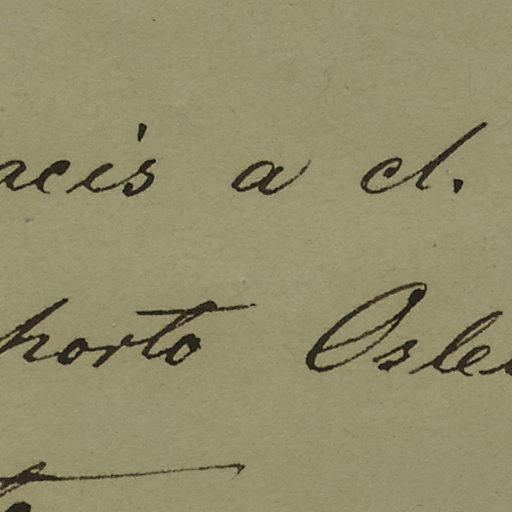 acis a cl.
horto Osle